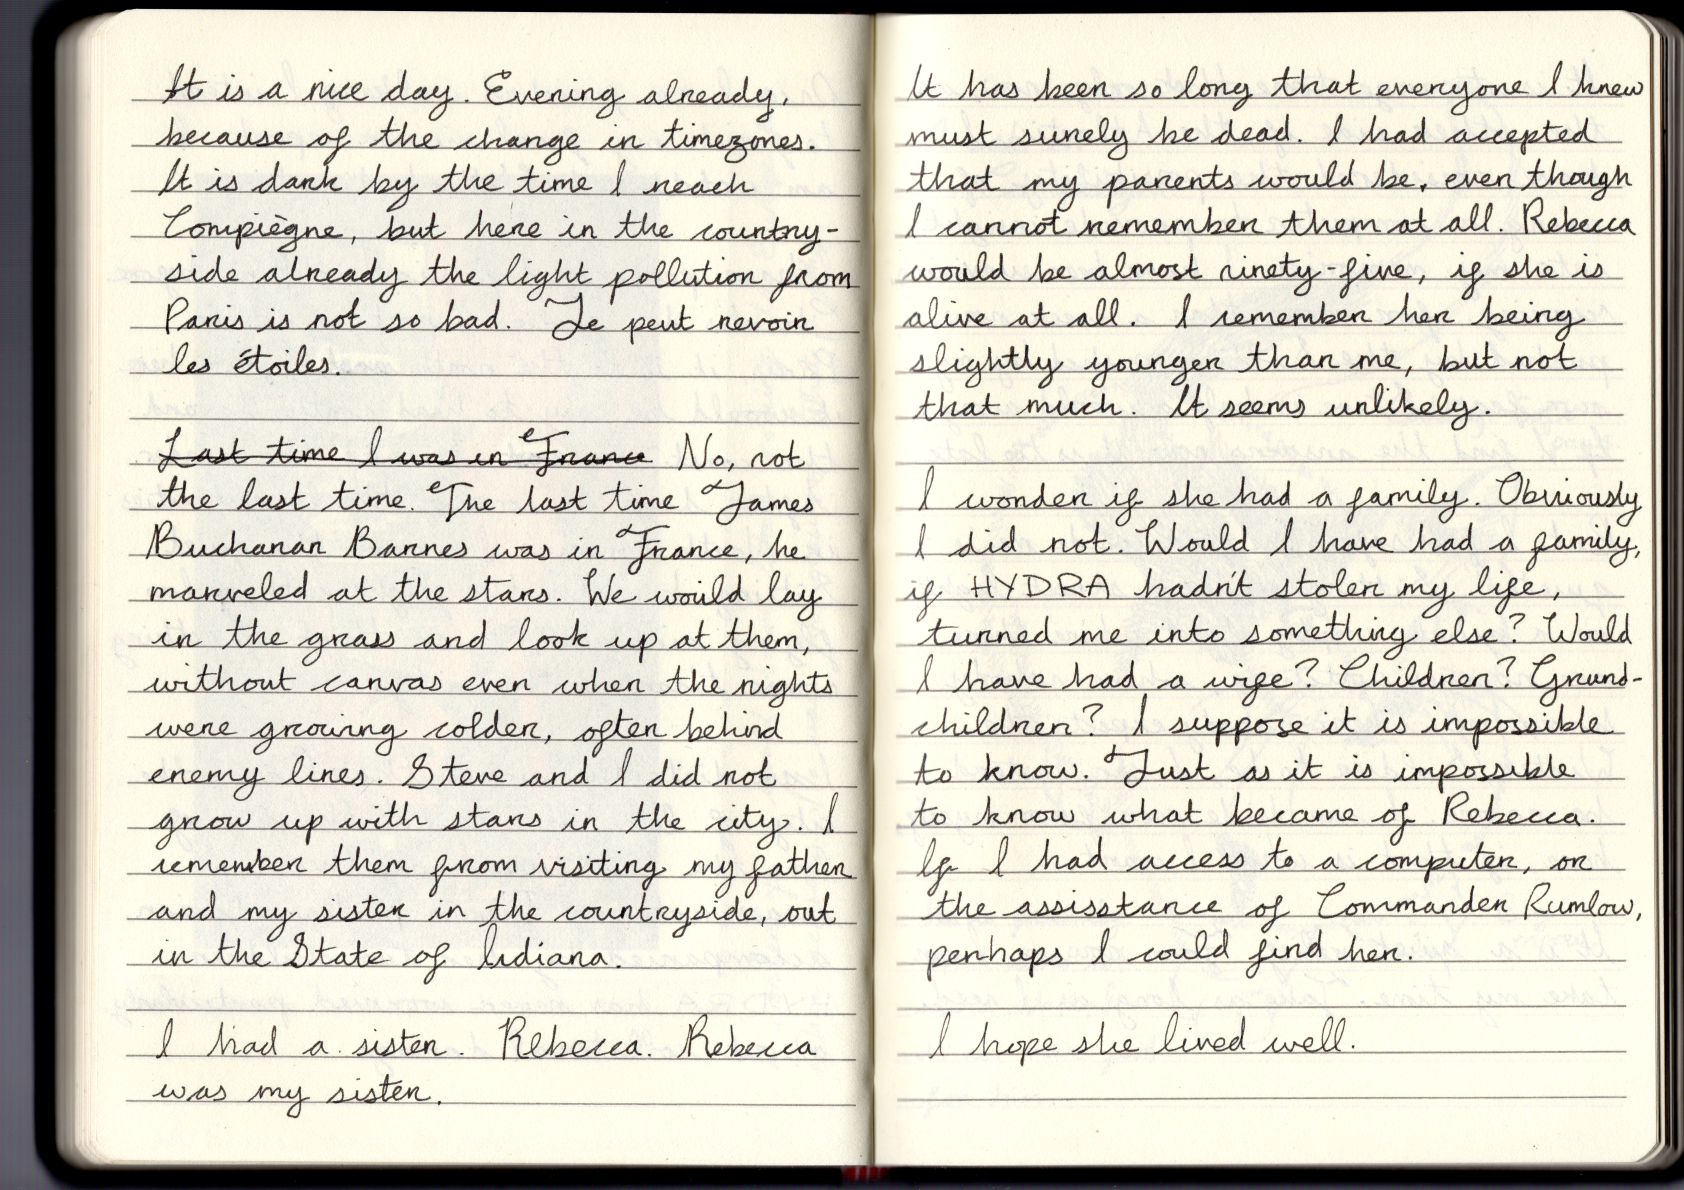 It is a nice day. Evening already,
because of the change in timezones.
It is dark by the time I reach
Compiègne, but here in the country-
side already the light pollution from
Paris is not so bad. Je peut revoir
les étoiles.
Last time I was in France No, not
the last time. The last time James
Buchanan Barnes was in France, he
marveled at the stars. We would lay
in the grass and look up at them,
without canvas even when the nights
were growing colder, often behind
enemy lines. Steve and I did not
grow up with stars in the city. I
remember them from visiting my father
and my sister in the countryside, out
in the State of Indiana.
I had a sister. Rebecca. Rebecca
was my sister.
It has been so long that everyone I knew
must surely be dead. I had accepted
that my parents would be, even though
I cannot remember them at all. Rebecca
would be almost ninety-five, if she is
alive at all. I remember her being
slightly younger than me, but not
that much. It seems unlikely.
I wonder if she had a family. Obviously
I did not. Would I have had a family,
if HYDRA hadn't stolen my life,
turned me into something else? Would
I have had a wife? Children? Grand-
children? I suppose it is impossible
to know. Just as it is impossible
to know what became of Rebecca.
If I had access to a computer, or
the assisstance of Commander Rumlow,
perhaps I could find her.
I hope she lived well.